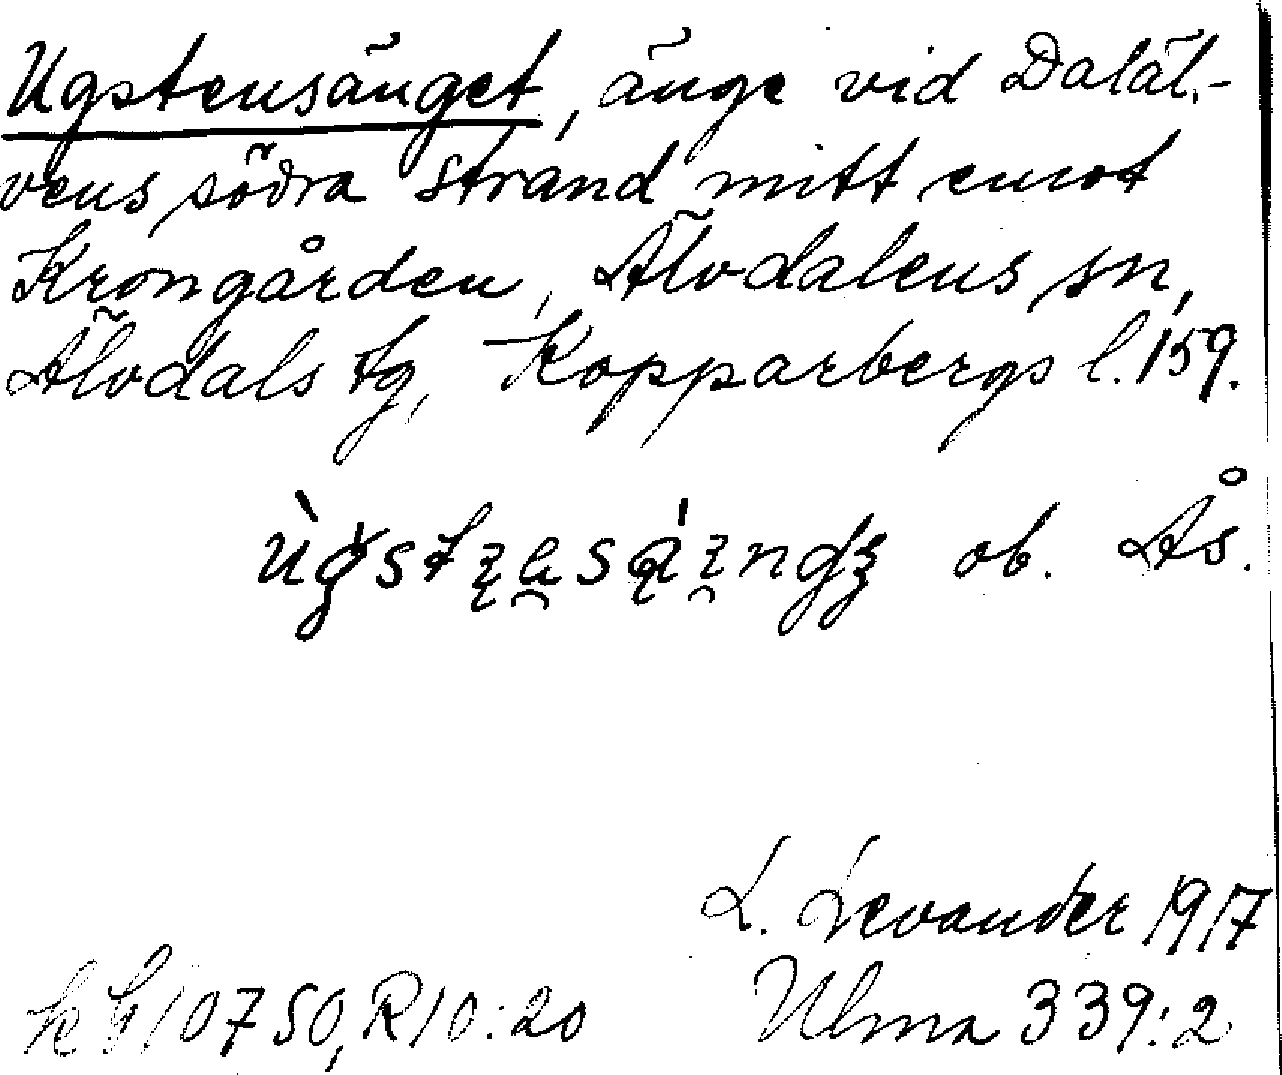 Ugstensänget, änge vid Daläl-
vens södra strand mitt emot
Krongården, Älvdalens sn,
Älvdals tg, Kopparbergs l. 159.
ob. Ås.
L. Levander 1917
R10:20 Ulma 339:2